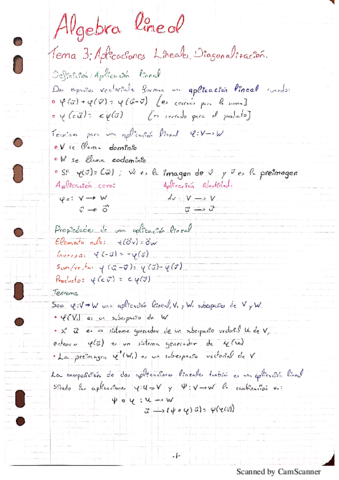 Algebra lineal
Tema 3: Aplicaciones Lineales, Diagonalización.
Definición: Aplicación lineal
Dos espacios vectoriales forman una aplicación lineal cuando:
φ(u⃗)+φ(v⃗) = φ(u⃗+v⃗) [es cerrado para la suma]
φ(cu⃗) = cφ(u⃗) [es cerrado para el producto]
Términos para una aplicación lineal φ:V→W
V se llama dominio
W se llama codominio
Si φ(v⃗)=(w⃗); w⃗ es la imagen de v⃗ y v⃗ es la preimagen
Aplicación cero: Aplicación identidad:
φ₀: V → W V → V
v⃗ → 0⃗ v⃗ → v⃗
Propiedades de una aplicación lineal
Elemento nulo: φ(0⃗v) = 0⃗w
Inversa: φ(-u⃗) = -φ(u⃗)
φ(u⃗-v⃗) = φ(u⃗)-φ(v⃗)
Producto: φ(cv⃗) = cφ(v⃗)
Teorema
Sea φ:V→W una aplicación lineal, V₁ y W₁ subespacios de V y W.
φ(V₁) es un subespacio de W
si es un sistema generador de un subespacio vectorial U de V,
entonces es un sistema generador de φ(U)
La preimagen φ⁻¹(W₁) es un subespacio vectorial de V
La composición de dos aplicaciones lineales también es una aplicación lineal
Siendo las aplicaciones φ:U→V y Ψ:V→W la combinación es:
Ψ∘φ: U → W
u⃗ → (Ψ∘φ)(u⃗) = Ψ(φ(u⃗))
-1-
Scanned by CamScanner